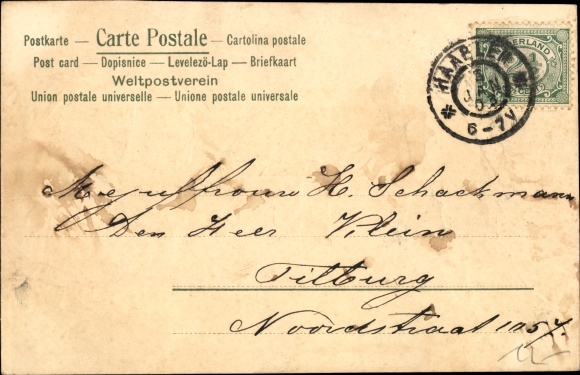 Postkarte — Carte Postale — Cartolina postale
Post card — Dopisnice — Levelező-Lap — Briefkaart
Weltpostverein
Union postale universelle — Unione postale universale
HAARLEM
6-7V
Mejuffrouw H. Schackmann
Den Heer Klein
Tilburg
Noordstraat